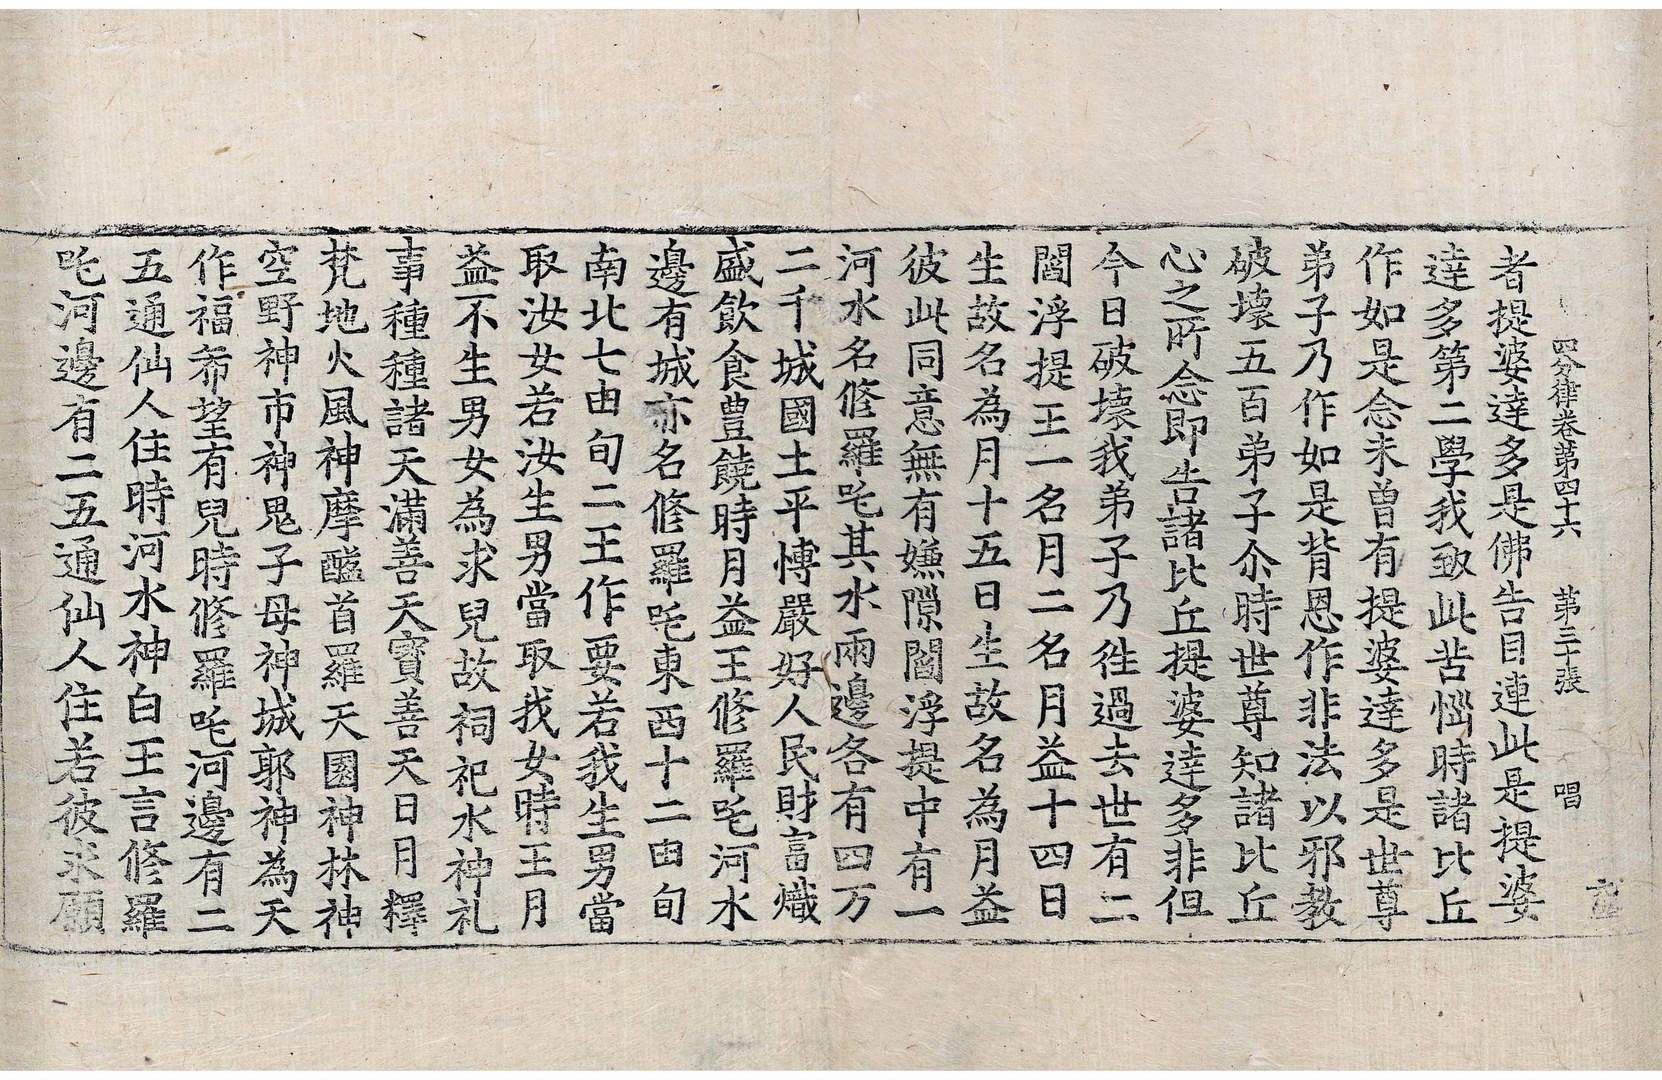 四分律卷第四十六　第三十張　唱
者提婆達多是佛告目連此是提婆
達多第二學我致此苦惱時諸比丘
作如是念未曾有提婆達多是世尊
弟子乃作如是背恩作非法以邪教
破壞五百弟子尒時世尊知諸比丘
心之所念即告諸比丘提婆達多非但
今日破壞我弟子乃徃過去世有二
閻浮提王一名月二名月益十四日
生故名為月十五日生故名為月益
彼此同意無有嫌隙閻浮提中有一
河水名修羅吒其水兩邊各有四万
二千城國土平博嚴好人民財富熾
盛飲食豊饒時月益王修羅吒河水
邊有城亦名修羅吒東西十二由旬
南北七由旬二王作要若我生男當
取汝女若汝生男當取我女時王月
益不生男女為求兒故祠祀水神礼
事種種諸天滿善天寶善天日月釋
梵地火風神摩醯首羅天園神林神
空野神市神鬼子母神城郭神為天
作福希望有兒時修羅吒河邊有二
五通仙人住時河水神白王言修羅
吒河邊有二五通仙人住若彼求願